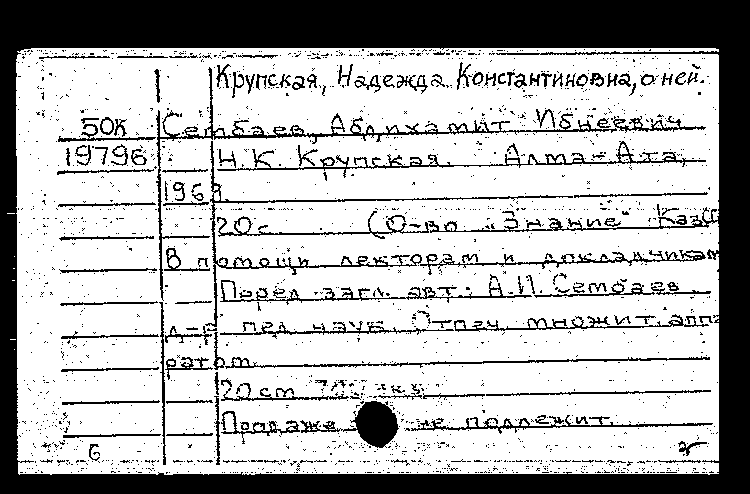 Крупская, Надежда Константиновна, о ней.
50К Сембаев, Абдихамит Ибнеевич
19796 Н. К. Крупская. Алма-Ата,
1969.
20с (О-во „Знание" КазСС
В помощь лекторам и докладчикам
Перед загл. авт.: А.И. Сембаев,
д-р пед наук. Отпеч. множит. аппа
ратом.
20 см 700 экз
Продаже не подлежит.
6